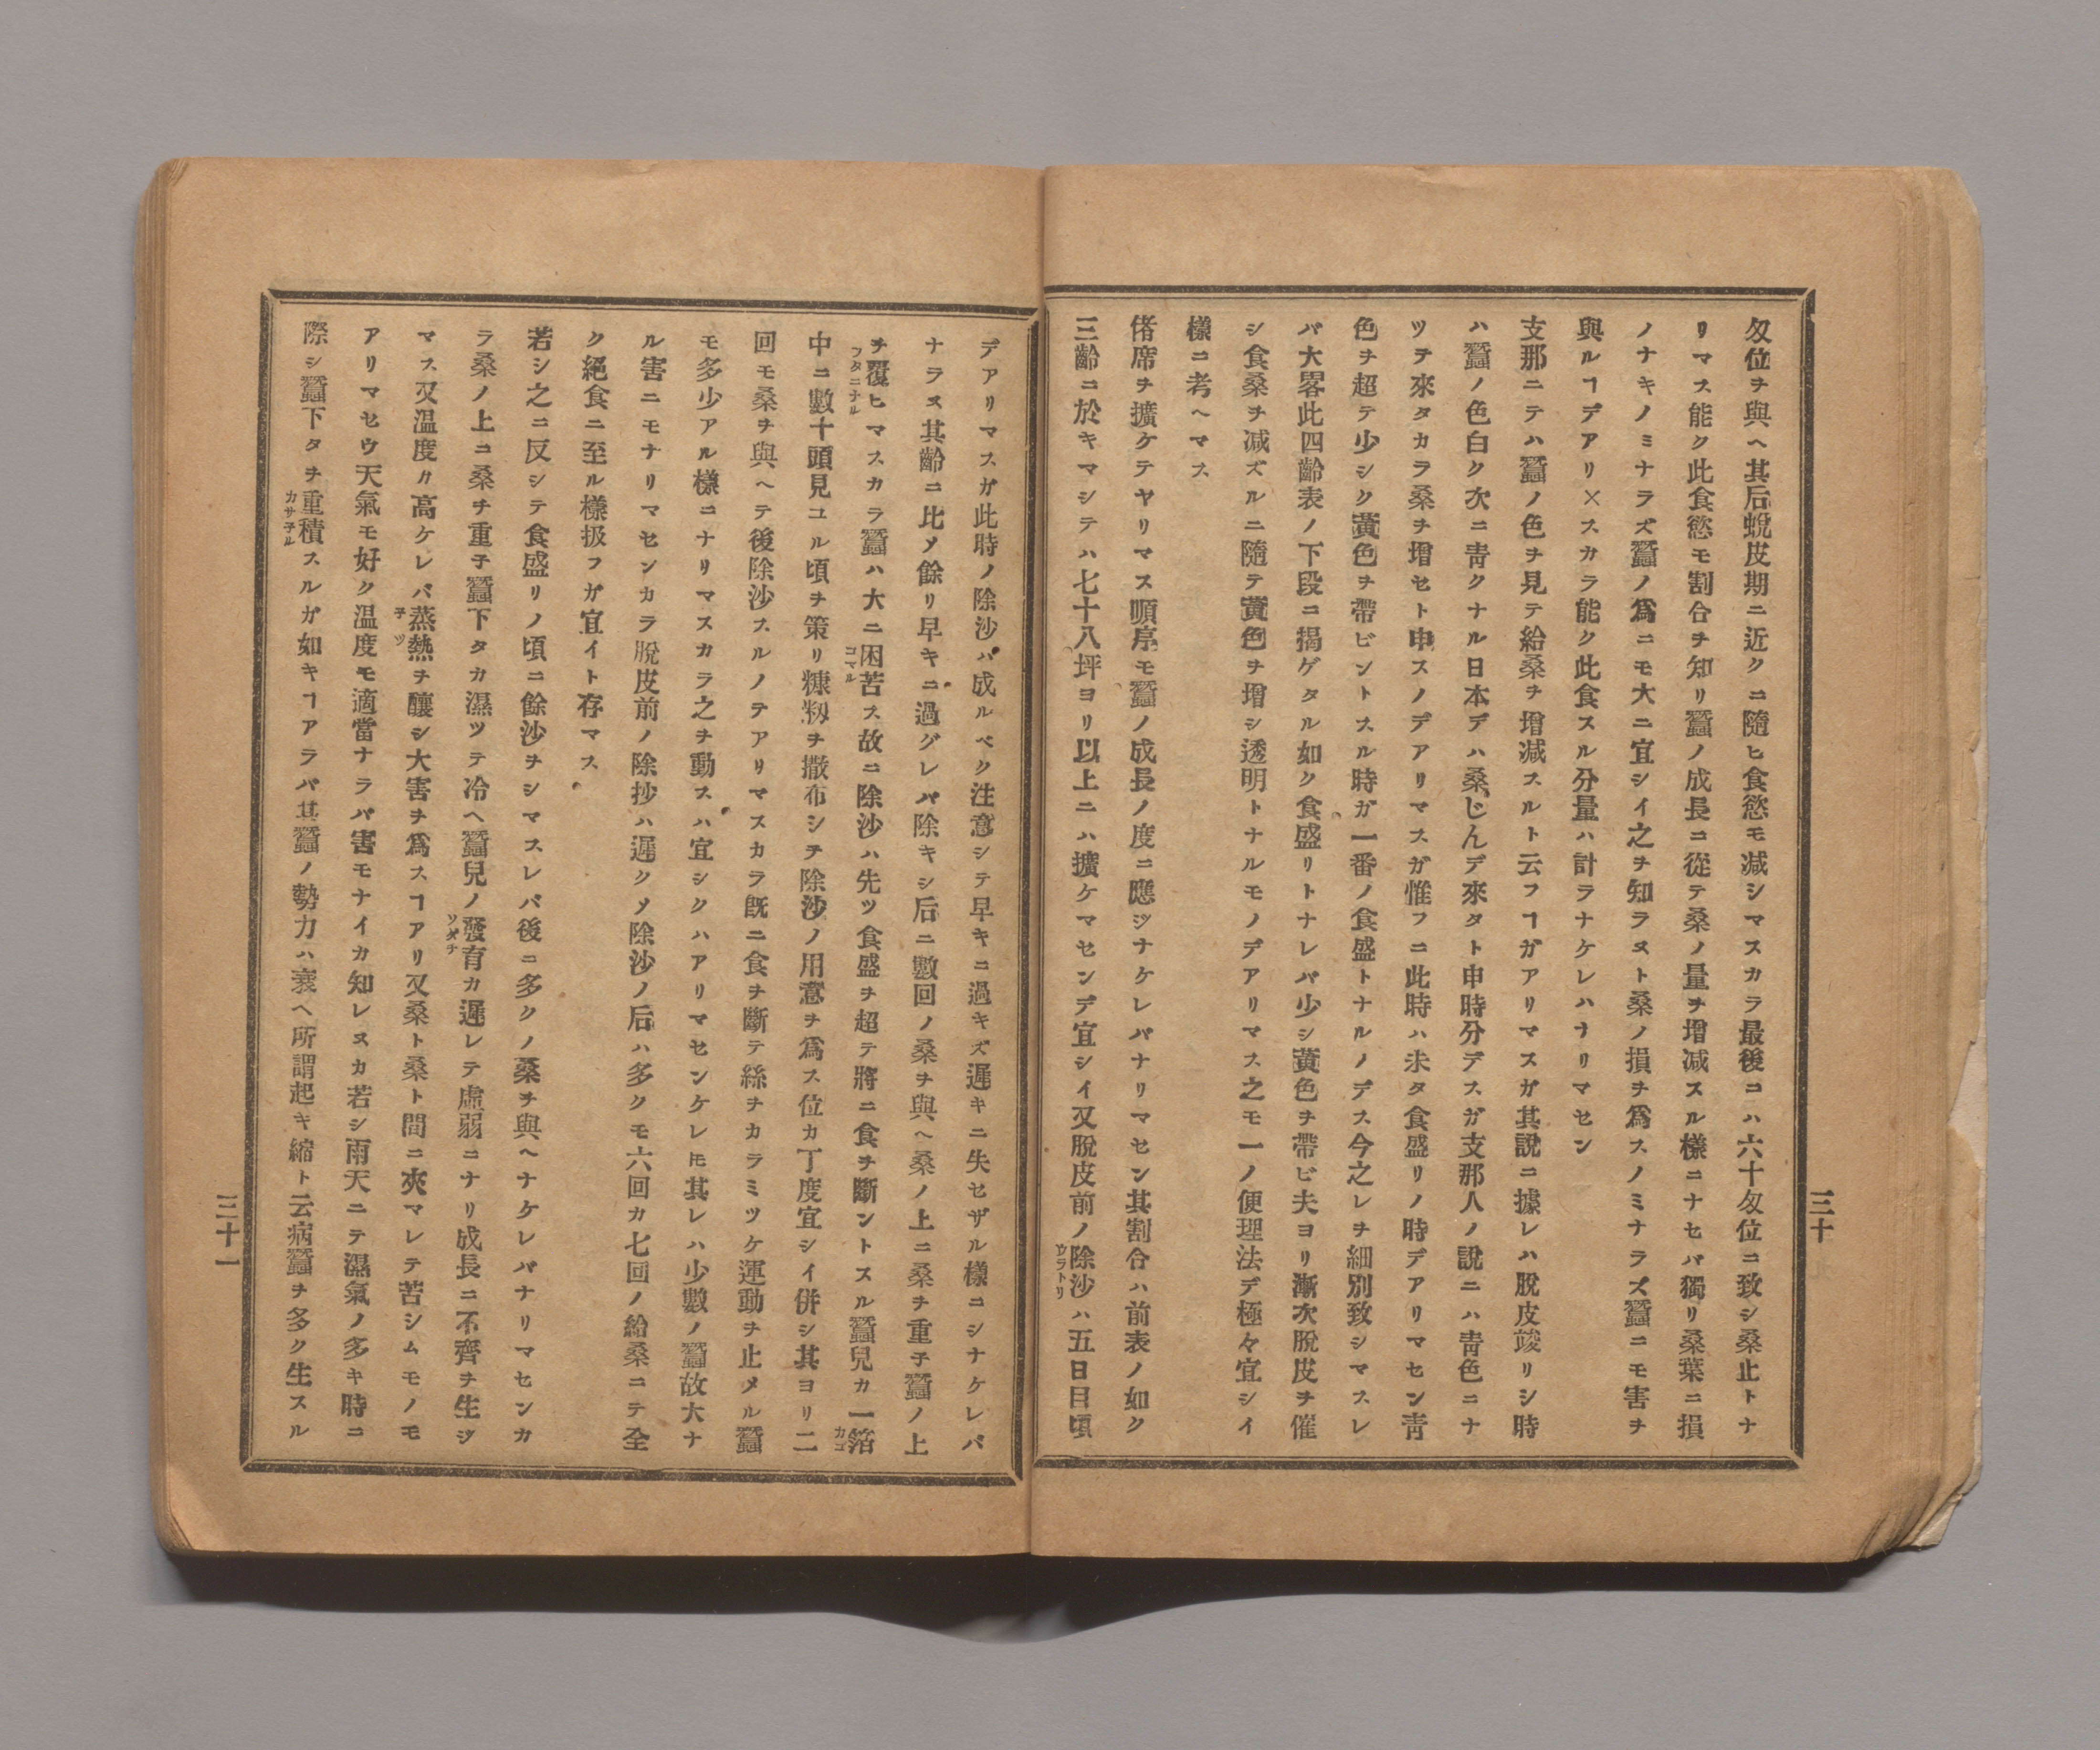 匁位ヲ與ヘ其后蛻皮期ニ近クニ隨ヒ食慾モ减シマスカラ最後ニハ六十匁位ニ致シ桑止トナ
リマス能ク此食慾モ割合ヲ知リ蠶ノ成長ニ從テ桑ノ量ヲ增减スル樣ニナセバ獨リ桑葉ニ損
ノナキノミナラズ蠶ノ爲ニモ大ニ宜シイ之ヲ知ラヌト桑ノ損ヲ爲スノミナラズ蠶ニモ害ヲ
與ルヿデアリ×スカラ能ク此食スル分量ハ計ラナケレハナリマセン
支那ニテハ蠶ノ色ヲ見テ給桑ヲ增减スルト云フヿガアリマスガ其說ニ據レハ脫皮竣リシ時
ハ蠶ノ色白ク次ニ靑クナル日本デハ桑じんデ來タト申時分デスガ支那人ノ說ニハ靑色ニナ
ツテ來タカラ桑ヲ增セト申スノデアリマスガ惟フニ此時ハ未タ食盛リノ時デアリマセン靑
色ヲ超テ少シク黃色ヲ帶ビントスル時ガ一番ノ食盛トナルノデス今之レヲ細別致シマスレ
バ大畧此四齡表ノ下段ニ揭ゲタル如ク食盛リトナレバ少シ黃色ヲ帶ビ夫ヨリ漸次脫皮ヲ催
シ食桑ヲ减ズルニ隨テ黃色ヲ增シ透明トナルモノデアリマス之モ一ノ便理法デ極々宜シイ
樣ニ考ヘマス
偖席ヲ擴ケテヤリマス順序モ蠶ノ成長ノ度ニ應ジナケレバナリマセン其割合ハ前表ノ如ク
三齡ニ於キマシテハ七十八坪ヨリ以上ニハ擴ケマセンデ宜シイ又脫皮前ノ除沙ハ五日目頃
ウラトリ
三十
デアリマスガ此時ノ除沙ハ成ルベク注意シテ早キニ過キズ遲キニ失セザル樣ニシナケレバ
ナラヌ其齡ニ比メ餘リ早キニ過グレバ除キシ后ニ數回ノ桑ヲ與ヘ桑ノ上ニ桑ヲ重子蠶ノ上
ヲ覆ヒマスカラ蠶ハ大ニ困苦ス故ニ除沙ハ先ツ食盛ヲ超テ將ニ食ヲ斷ントスル蠶兒カ一箔
フタニナル コマル カゴ
中ニ數十頭見ユル頃ヲ策リ糠籾ヲ撒布シテ除沙ノ用意ヲ爲ス位カ丁度宜シイ併シ其ヨリ二
回モ桑ヲ與ヘテ後除沙スルノテアリマスカラ既ニ食ヲ斷テ絲ヲカラミツケ運動ヲ止メル蠶
モ多少アル樣ニナリマスカラ之ヲ動スハ宜シクハアリマセンケレ𪜈其レハ少數ノ蠶故大ナ
ル害ニモナリマセンカラ脫皮前ノ除抄ハ遲クメ除沙ノ后ハ多クモ六回カ七回ノ給桑ニテ全
ク絕食ニ至ル樣扱フガ宜イト存マス
若シ之ニ反シテ食盛リノ頃ニ餘沙ヲシマスレバ後ニ多クノ桑ヲ與ヘナケレバナリマセンカ
ラ桑ノ上ニ桑ヲ重子蠶下タカ濕ツテ冷ヘ蠶兒ノ發育カ遲レテ虛弱ニナリ成長ニ不齊ヲ生ジ
ソダチ
マス又溫度カ高ケレバ蒸熱ヲ釀シ大害ヲ爲スヿアリ又桑ト桑ト間ニ夾マレテ苦シムモノモ
子ツ
アリマセウ天氣モ好ク溫度モ適當ナラバ害モナイカ知レヌカ若シ雨天ニテ濕氣ノ多キ時ニ
際シ蠶下タヲ重積スルガ如キヿアラバ其蠶ノ勢力ハ衰ヘ所謂起キ縮ト云病蠶ヲ多ク生スル
カサ子ル
三十一